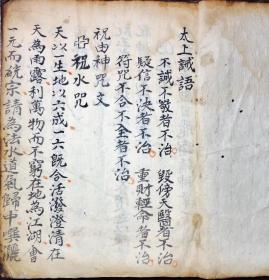 太上誡語
不誠不敬者不治 毀傍天醫者不治
疑信不決者不治 重財輕命者不治
符咒不合不全者不治
祝由神咒文
祝水咒
天以一生地以六成一六既合活潑澄清在
天為雨露利萬物而不窮在地為江湖會
一元而統宗請為法水道氣歸中噀灑